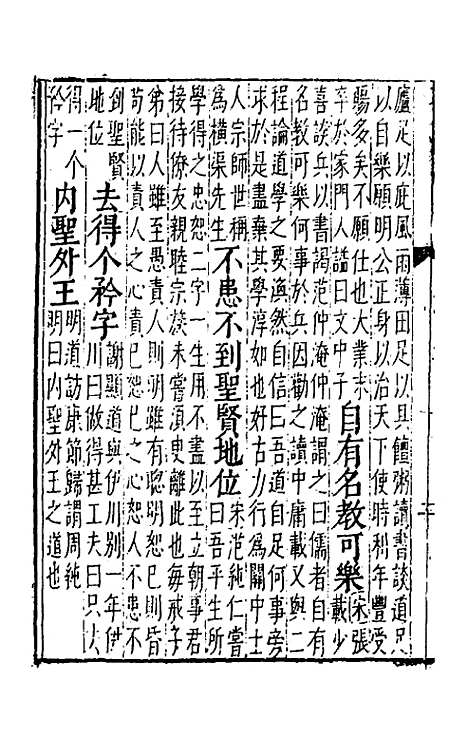 廬足以庇風雨薄田足以具饘粥讀書談道足
以自樂願明公正身以治天下使時和年豐受
賜多矣不願仕也大業末
卒於家門人諡曰文中子
自有名教可樂
宋張
載少
喜談兵以書謁范仲淹仲淹謂之曰儒者自有
名教可樂何事於兵因勸之讀中庸載又與二
程論道學之要渙然自信曰吾道自足何事旁
求於是盡棄其學淳如也好古力行為關中士
人宗師世稱
為橫渠先生
不患不到聖賢地位
宋范純仁嘗
曰吾平生所
學得之忠恕二字一生用不盡以至立朝事君
接待僚友親睦宗族未嘗須臾離此也每戒子
弟曰人雖至愚責人則明雖有聰明恕己則昏
苟能以責人之心責己恕己之心恕人不患不
到聖賢
地位
去得个矜字
謝顯道與伊川別一年伊
川曰做得甚工夫曰只去
得一个
矜字
內聖外王
明道訪康節歸謂周純
明曰內聖外王之道也